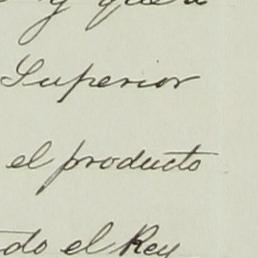 y que
Superior
el producto
do el Rey